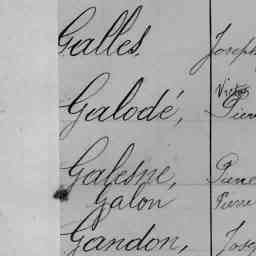 Galles, Joseph
Victor
Galodé, Pierre
Galesne, Pierre
Galon Pierre
Gandon, Jose